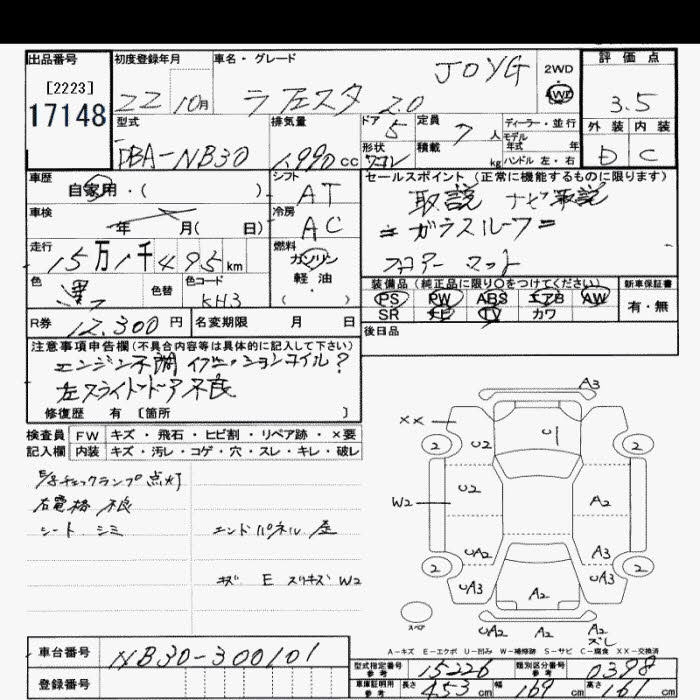 出品番号 初度登録年月 車名・グレード 評価点
[2223] 17148 22 10月 ラフェスタ 2.0 JOYG 2WD 4WD 3.5
型式 排気量 ドア 5 定員 7人 ディーラー・並行 外装 内装
DBA-NB30 1,990cc 形状 ワゴン 積載 kg モデル年式 年 ハンドル 左・右 D C
車歴 自家用・( ) シフト AT セールスポイント (正常に機能するものに限ります)
車検 年 月( 日) 冷房 AC 取説 ナビ取説
=ガラスルーフ=
走行 15万1千495km 燃料 ガソリン・軽油・( ) フロアーマット
色 黒 色替 色コード KH3 装備品(純正品に限り○をつけてください) 新車保証書
PS PW ABS エアB AW 有・無
SR ナビ TV カワ
R券 12,300円 名変期限 月 日 後日品
注意事項申告欄(不具合内容等は具体的に記入して下さい)
エンジン不調 イグニッションコイル?
左スライドドア不良
修復歴 有 〔箇所 〕
検査員 FW キズ・飛石・ヒビ割・リペア跡・×要
記入欄 内装 キズ・汚レ・コゲ・穴・スレ・キレ・破レ
E/gチェックランプ点灯
右電格 不良
シート シミ エンドパネル
キズ E スリキズ W2
A3
XX 2 U2 U1 2
W2 U2 A2
UA2 A3
2 UA3 UA3 2
A2
スペア UA2 A2 UA3
ズレ
A-キズ E-エクボ U-凹み W-補修跡 S-サビ C-腐食 XX-交換済
車台番号 NB30-300101 型式指定番号 参考 15226 類別区分番号 参考 0398
登録番号 車庫証明用 参考 長さ 453cm 幅 169cm 高さ 161cm